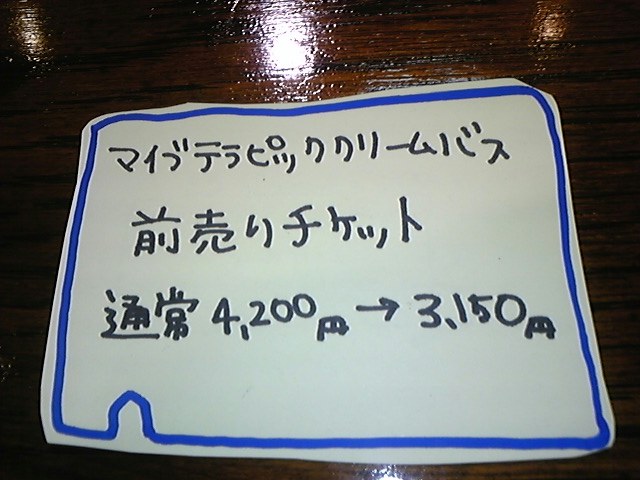 マイブテラピッククリームバス
前売りチケット
通常 4,200円→3,150円